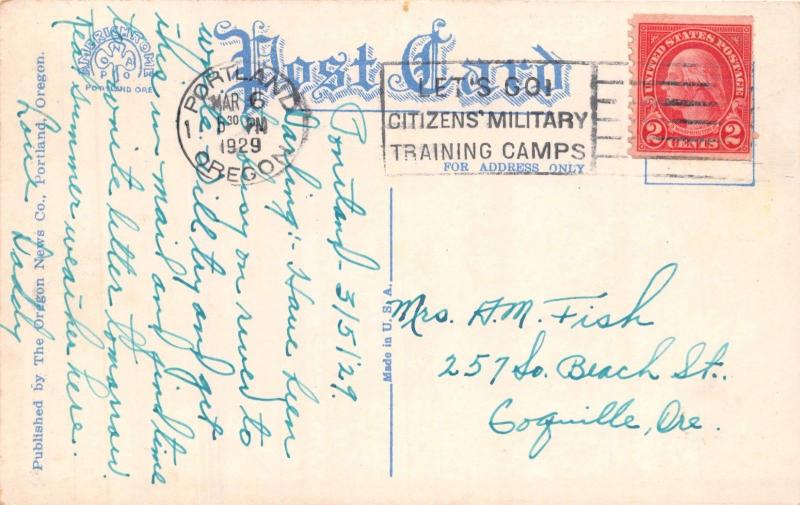 Post Card
AMERICHROME
PORTLAND ORE
PORTLAND
MAR 6
30 PM
1929
OREGON
LET'S GO!
CITIZENS' MILITARY
TRAINING CAMPS
FOR ADDRESS ONLY
UNITED STATES POSTAGE
2 CENTS 2
Portland - 3/5/29.
Darling:- Have been
busy on river to
will try and get
this in mail and find time
to write letter tomorrow.
Real summer weather here.
Love
Daddy
Mrs. H. M. Fish
257 So. Beach St.
Coquille, Ore.
Made in U. S. A.
Published by The Oregon News Co., Portland, Oregon.